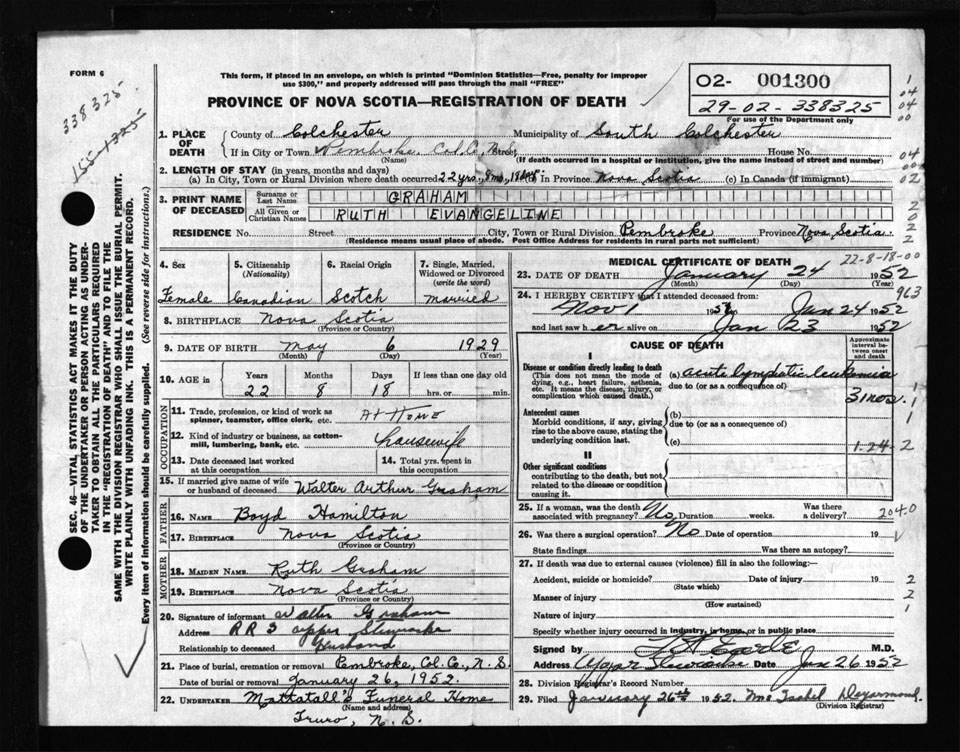 FORM 6
This form, if placed in an envelope, on which is printed "Dominion Statistics—Free, penalty for improper
use $300," and properly addressed will pass through the mail "FREE"
PROVINCE OF NOVA SCOTIA—REGISTRATION OF DEATH
02- 001300
29-02-338325
For use of the Department only
338325
155-1325
SEC. 46—VITAL STATISTICS ACT MAKES IT THE DUTY
OF THE UNDERTAKER OR PERSON ACTING AS UNDER-
TAKER TO OBTAIN ALL THE PARTICULARS REQUIRED
IN THE "REGISTRATION OF DEATH" AND TO FILE THE
SAME WITH THE DIVISION REGISTRAR WHO SHALL ISSUE THE BURIAL PERMIT.
WRITE PLAINLY WITH UNFADING INK. THIS IS A PERMANENT RECORD.
Every item of information should be carefully supplied. (See reverse side for instructions.)
1. PLACE OF DEATH
County of Colchester Municipality of South Colchester
If in City or Town Pembroke, Col. Co., N.S. Street House No.
(Name) (If death occurred in a hospital or institution, give the name instead of street and number)
2. LENGTH OF STAY (in years, months and days)
(a) In City, Town or Rural Division where death occurred 22 yrs, 8 mo, 18 days (b) In Province Nova Scotia (c) In Canada (if immigrant)
3. PRINT NAME OF DECEASED
Surname or Last Name GRAHAM
All Given or Christian Names RUTH EVANGELINE
RESIDENCE No. Street City, Town or Rural Division Pembroke Province Nova Scotia
(Residence means usual place of abode. Post Office Address for residents in rural parts not sufficient)
4. Sex
Female
5. Citizenship (Nationality)
Canadian
6. Racial Origin
Scotch
7. Single, Married, Widowed or Divorced (write the word)
Married
8. BIRTHPLACE Nova Scotia
(Province or Country)
9. DATE OF BIRTH May 6 1929
(Month) (Day) (Year)
10. AGE in Years Months Days If less than one day old
22 8 18 hrs. or min.
OCCUPATION
11. Trade, profession, or kind of work as spinner, teamster, office clerk, etc. At Home
12. Kind of industry or business, as cotton-mill, lumbering, bank, etc. housewife
13. Date deceased last worked at this occupation
14. Total yrs. spent in this occupation
15. If married give name of wife or husband of deceased Walter Arthur Graham
FATHER
16. NAME Boyd Hamilton
17. BIRTHPLACE Nova Scotia
(Province or Country)
MOTHER
18. MAIDEN NAME Ruth Graham
19. BIRTHPLACE Nova Scotia
(Province or Country)
20. Signature of informant Walter Graham
Address RR 3 Upper Stewiacke
Relationship to deceased Husband
21. Place of burial, cremation or removal Pembroke, Col. Co., N.S.
Date of burial or removal January 26, 1952.
22. UNDERTAKER Mattatall's Funeral Home
(Name and address)
Truro, N.S.
MEDICAL CERTIFICATE OF DEATH
22-8-18-00
23. DATE OF DEATH January 24 1952
(Month) (Day) (Year)
963
24. I HEREBY CERTIFY that I attended deceased from:
Nov 1 1951 to Jan 24 1952
and last saw her alive on Jan 23 1952
CAUSE OF DEATH
Approximate interval between onset and death
I
Disease or condition directly leading to death
(This does not mean the mode of dying, e.g., heart failure, asthenia, etc. It means the disease, injury, or complication which caused death.)
(a) acute lymphatic leukemia
due to (or as a consequence of) 3 mos.
Antecedent causes
Morbid conditions, if any, giving rise to the above cause, stating the underlying condition last.
(b)
due to (or as a consequence of)
(c)
1-24-2
II
Other significant conditions
contributing to the death, but not related to the disease or condition causing it.
25. If a woman, was the death associated with pregnancy? No Duration weeks. Was there a delivery?
204.0
26. Was there a surgical operation? No Date of operation 19
State findings Was there an autopsy?
27. If death was due to external causes (violence) fill in also the following:
Accident, suicide or homicide? Date of injury 19
(State which)
Manner of injury
(How sustained)
Nature of injury
Specify whether injury occurred in industry, in home, or in public place
Signed by M.D.
Address Upper Stewiacke Date Jan 26 1952
28. Division Registrar's Record Number
29. Filed January 26th 1952. Mrs Isabel Deyarmond.
(Division Registrar)
1
04
04
00
04
00
02
2
0
2
2
1
1
1
2
2
1